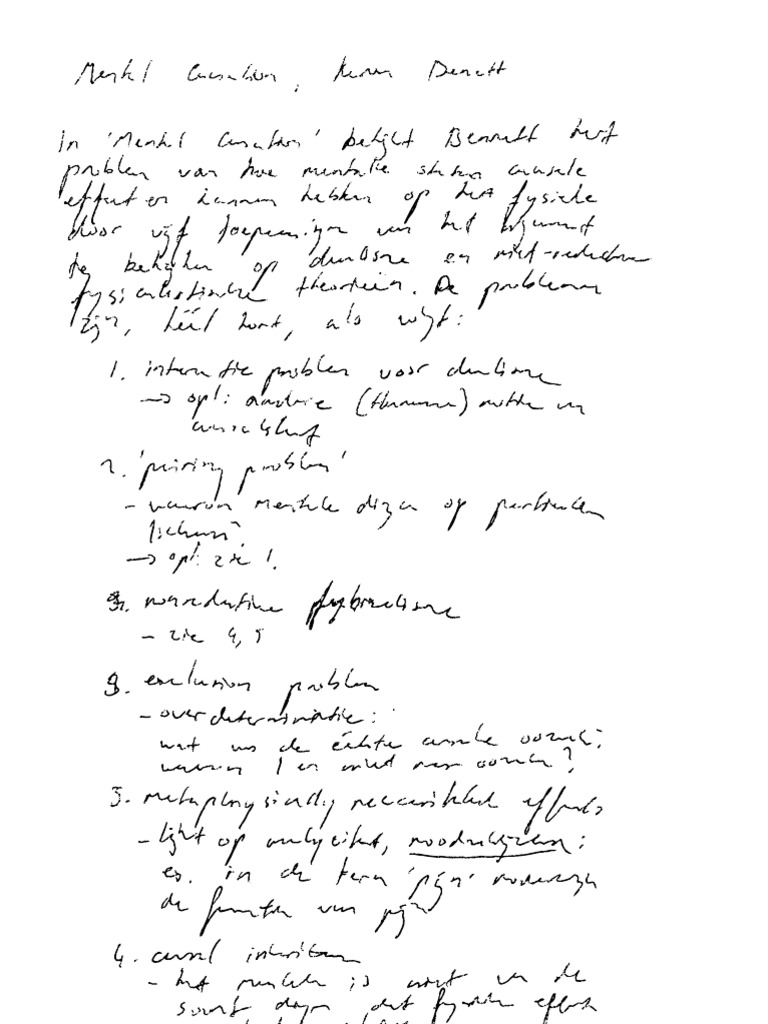 Mental Causation, Karen Bennett
In 'Mental Causation' bekijkt Bennett het
probleem van hoe mentale staten causale
effecten kunnen hebben op het fysieke
door vijf toepassingen van het argument
te bekijken op dualisme en niet-reductieve
fysicalistische theorieën. De problemen
zijn, héél kort, als volgt:
1. interactie probleem voor dualisme
→ opl: andere (Humeaanse) notie van
causaliteit
2. 'pairing problem'
- waarom mentale dingen op particuliere
lichamen?
→ opl: zie 1.
nonreductive fysicalisme
- zie 4, 5
3. exclusion problem
- overdeterminatie:
wat is de échte causale oorzaak;
waarom 1 en niet meer oorzaken?
metaphysically necessitated effects
- lijkt op analyciteit, noodzakelijk:
in de term 'pijn'
de functie van pijn
4. causal
- het mentale is niet van de
soort dingen dat fysieke effecten